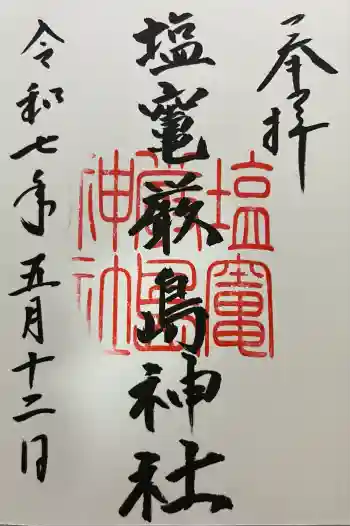 奉拝
塩竈厳島神社
令和七年五月十二日
塩竈
厳島
神社